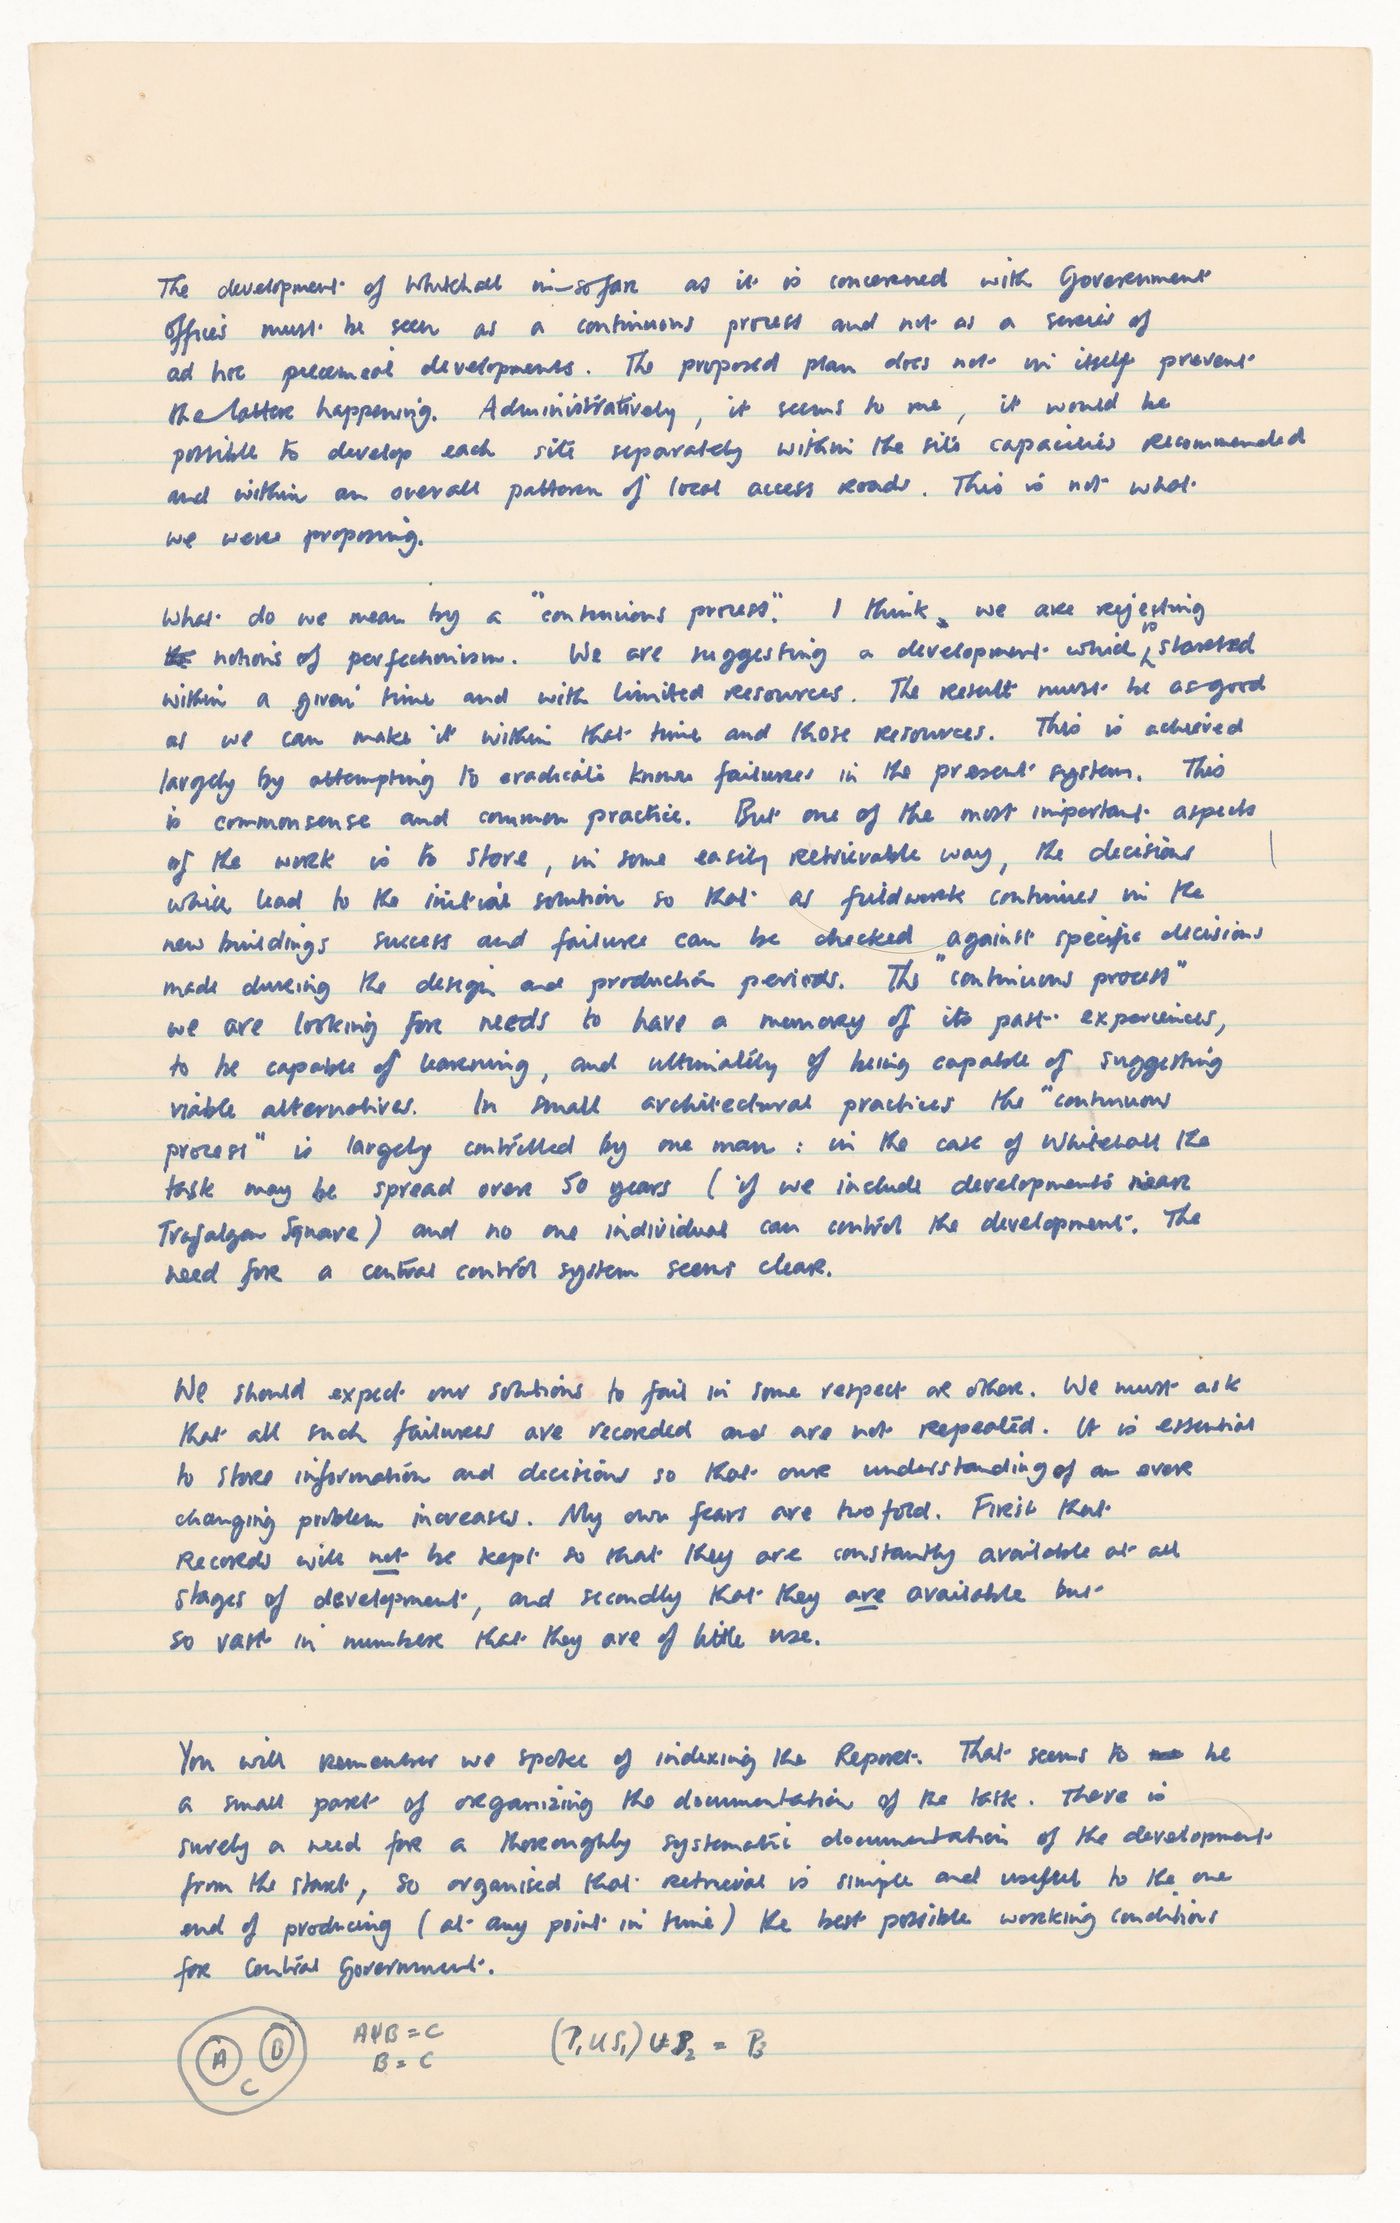 The development of Whitehall in-so-far as it is concerned with Government
Offices must be seen as a continuous process and not as a series of
ad hoc piecemeal developments. The proposed plan does not in itself prevent
the latter happening. Administratively, it seems to me, it would be
possible to develop each site separately within the site capacities recommended
and within an overall pattern of local access roads. This is not what
we were proposing.
What do we mean by a "continuous process". I think, we are rejecting
the notions of perfectionism. We are suggesting a development which is started
within a given time and with limited resources. The result must be as good
as we can make it within that time and those resources. This is achieved
largely by attempting to eradicate known failures in the present system. This
is commonsense and common practice. But one of the most important aspects
of the work is to store, in some easily retrievable way, the decisions
which lead to the initial solution so that as fieldwork continues in the
new buildings success and failure can be checked against specific decisions
made during the design and production periods. The "continuous process"
we are looking for needs to have a memory of its past experiences,
to be capable of learning, and ultimately of being capable of suggesting
viable alternatives. In small architectural practices the "continuous
process" is largely controlled by one man: in the case of Whitehall the
task may be spread over 50 years (if we include developments near
Trafalgar Square) and no one individual can control the development. The
need for a central control system seems clear.
We should expect our solutions to fail in some respect or other. We must ask
that all such failures are recorded and are not repeated. It is essential
to store information and decisions so that our understanding of an ever
changing problem increases. My own fears are twofold. First that
records will not be kept so that they are constantly available at all
stages of development, and secondly that they are available but
so vast in number that they are of little use.
You will remember we spoke of indexing the Report. That seems to be
a small part of organizing the documentation of the task. There is
surely a need for a thoroughly systematic documentation of the development
from the start, so organised that retrieval is simple and useful to the one
end of producing (at any point in time) the best possible working conditions
for Central Government.
A B C
A∪B = C
B = C
(P₁ ∪ S₁) ∪ P₂ = P₃